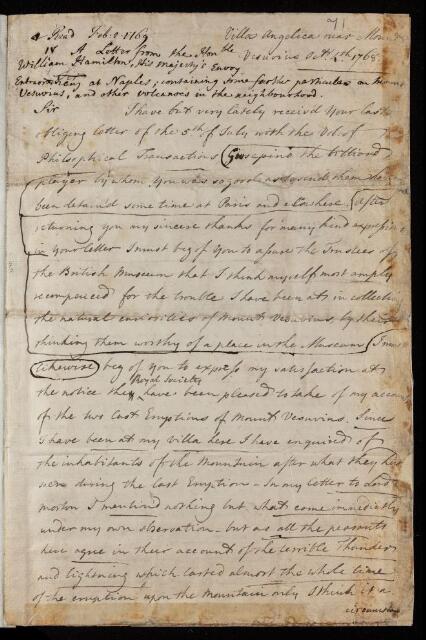 Read Feb: 2 1769
71
Villa Angelica near Mount
18 A Letter from the Honble
Vesuvius Oct 4th 1768
William Hamilton, His Majesty's Envoy
Extraordinary at Naples; containing some farther particulars on Mount
Vesuvius, and other volcanoes in the neighbourhood.
Sir
I have but very lately receiv'd Your last
obliging letter of the 5th of July with the Vol. of
Philosophical Transactions Giuseppino the billiard
player by whom You was so good as to send them
been detain'd some time at Paris and elsewhere. After
returning you my sincere thanks for many kind expressions
in Your letter I must beg of You to assure the Trustees of
the British Museum that I think myself most amply
recompenced for the trouble I have been at in collecting
the natural curiosities of Mount Vesuvius, by their
thinking them worthy of a place in the Museum I must
likewise beg of You to express my satisfaction at
the notice the Royal Society have been pleased to take of my account
of the two last Eruptions of Mount Vesuvius. Since
I have been at my villa here I have enquired of
the inhabitants of the Mountain after what they
seen during the last Eruption - In my letter to Lord
Morton I mention'd nothing but what came immediately
under my own observation - but as all the peasants
here agree in their account of the terrible Thunder
and lightning which lasted almost the whole time
of the eruption upon the Mountain only I think it a
circumstance